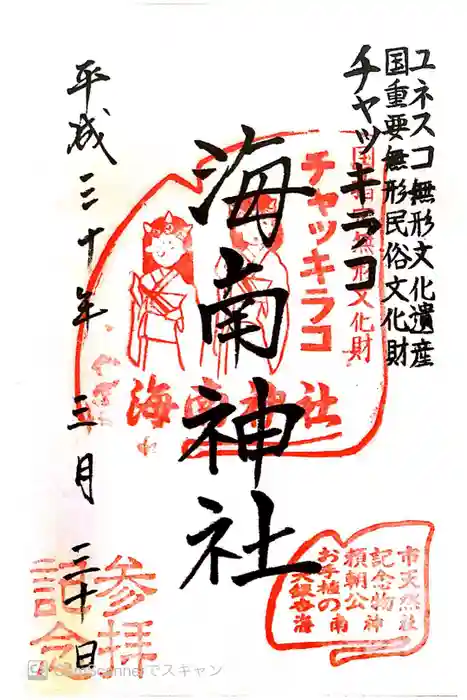 ユネスコ無形文化遺産
国重要無形民俗文化財
チャッキラコ
国指定無形文化財
チャッキラコ
海南神社
海南神社
平成三十年 三月 三十日
市天然
記念物
頼朝公
お手植の
大銀杏
海南神社
参拝
記念
CS CamScannerでスキャン